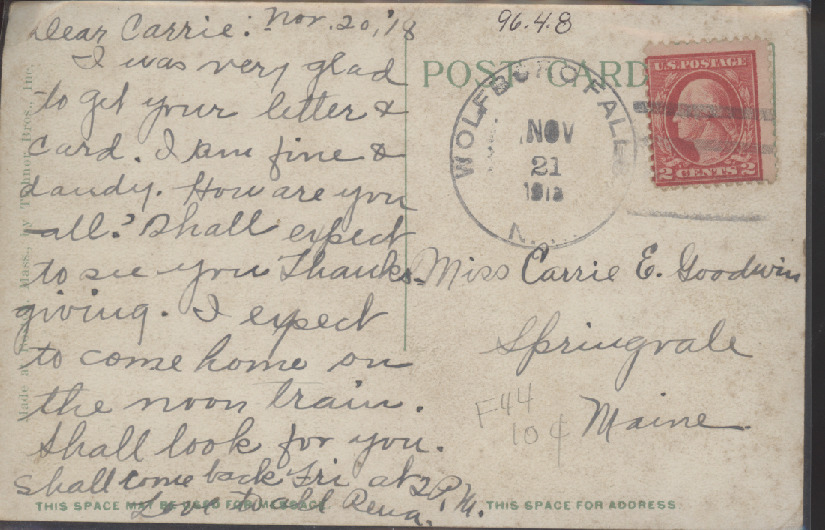 Dear Carrie:- Nov. 20, '18
I was very glad
to get your letter &
card. I am fine &
dandy. How are you
all? Shall expect
to see you Thanks-
giving. I expect
to come home on
the noon train.
Shall look for you.
Shall come back Fri at 2 P.M.
Love to all Rena.
THIS SPACE MAY BE USED FOR MESSAGE
Mass., by Bros., Inc.
96.4.8
POST CARD
WOLFBORO FALLS
NOV
21
U.S. POSTAGE
2 CENTS 2
Miss Carrie E. Goodwin
Springvale
Maine
F44
10¢
THIS SPACE FOR ADDRESS